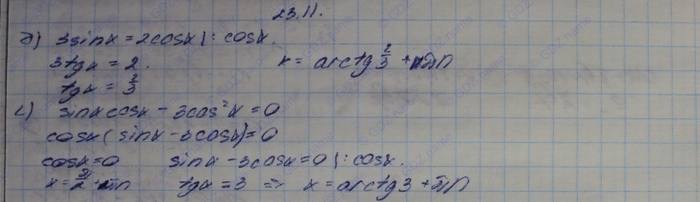 23.11.
д) 3sinx = 2cosx |: cosx
3tgx = 2. x = arctg 2/3 + πn
tgx = 2/3
е) sinxcosx - 3cos²x = 0
cosx(sinx - 3cosx) = 0
cosx = 0 sinx - 3cosx = 0 |: cosx.
x = π/2 + πn tgx = 3 => x = arctg3 + πn